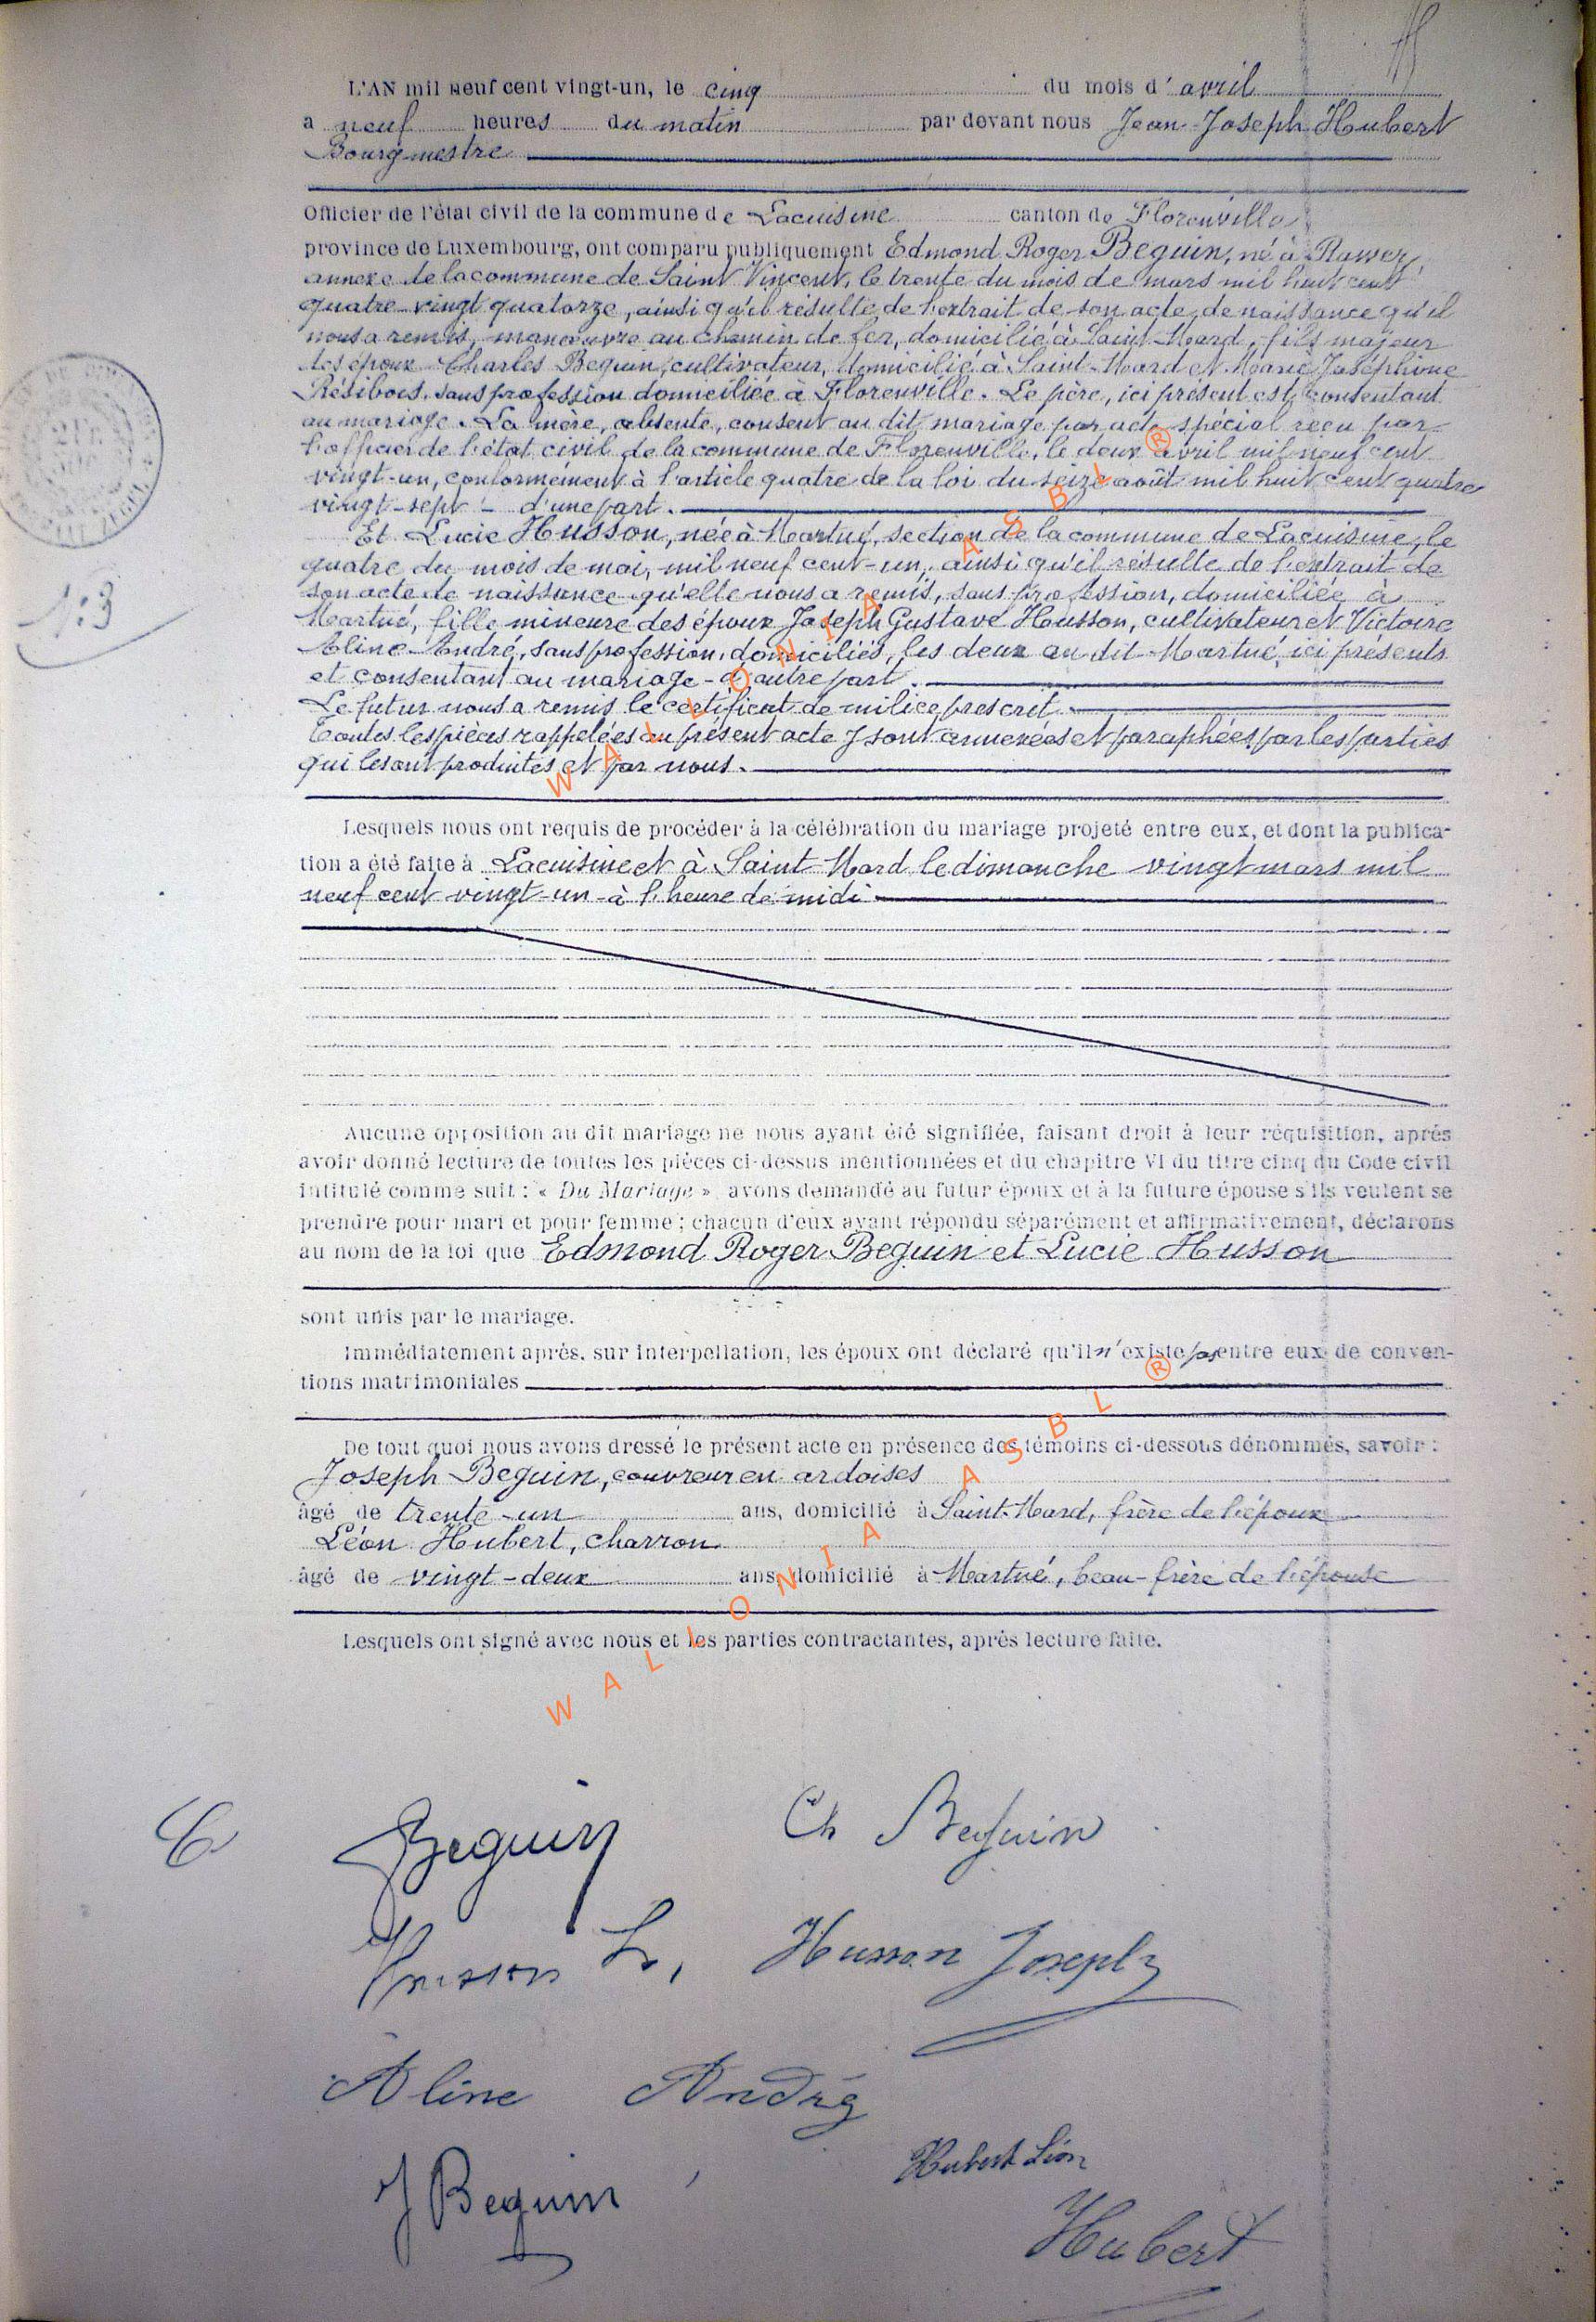 L'AN mil neuf cent vingt-un, le cinq du mois d' avril
a neuf heures du matin par devant nous Jean-Joseph Hubert
Bourgmestre
Officier de l'état civil de la commune de Lacuisine canton de Florenville
province de Luxembourg, ont comparu publiquement Edmond Roger Beguin, né à
annexe de la commune de Saint Vincent, le trente du mois de mars mil huit cent
quatre-vingt quatorze, ainsi qu'il résulte de l'extrait de son acte de naissance qu'il
nous a remis, manœuvre au chemin de fer, domicilié à Saint-Mard, fils majeur
des époux Charles Beguin, cultivateur, domicilié à Saint-Mard et Marie Joséphine
Résibois, sans profession domiciliée à Florenville. Le père, ici présent est consentant
au mariage. La mère, absente, consent au dit mariage par acte spécial reçu par
l'officier de l'état civil de la commune de Florenville, le deux avril mil neuf cent
vingt-un, conformément à l'article quatre de la loi du seize août mil huit cent quatre
vingt-sept - d'une part.
Et Lucie Husson, née à Martué, section de la commune de Lacuisine, le
quatre du mois de mai, mil neuf cent-un, ainsi qu'il résulte de l'extrait de
son acte de naissance qu'elle nous a remis, sans profession, domiciliée à
Martué, fille mineure des époux Joseph Gustave Husson, cultivateur et Victoire
Aline André, sans profession, domiciliés, les deux au dit Martué, ici présents
et consentant au mariage - d'autre part.
Le futur nous a remis le certificat de milice prescrit.
Toutes les pièces rappelées au présent acte y sont annexées et paraphées par les parties
qui les ont produites et par nous.
Lesquels nous ont requis de procéder à la célébration du mariage projeté entre eux, et dont la publica-
tion a été faite à Lacuisine et à Saint-Mard le dimanche vingt mars mil
neuf cent vingt-un - à l'heure de midi
Aucune opposition au dit mariage ne nous ayant été signifiée, faisant droit à leur réquisition, après
avoir donné lecture de toutes les pièces ci-dessus mentionnées et du chapitre VI du titre cinq du Code civil
intitulé comme suit : « Du Mariage », avons demandé au futur époux et à la future épouse s'ils veulent se
prendre pour mari et pour femme ; chacun d'eux ayant répondu séparément et affirmativement, déclarons
au nom de la loi que Edmond Roger Beguin et Lucie Husson
sont unis par le mariage.
Immédiatement après, sur interpellation, les époux ont déclaré qu'il n'existe pas entre eux de conven-
tions matrimoniales
De tout quoi nous avons dressé le présent acte en présence des témoins ci-dessous dénommés, savoir :
Joseph Beguin, couvreur en ardoises
âgé de trente-un ans, domicilié à Saint-Mard, frère de l'époux
Léon Hubert, charron
âgé de vingt-deux ans, domicilié à Martué, beau-frère de l'épouse
Lesquels ont signé avec nous et les parties contractantes, après lecture faite.
WALLONIA ASBL ®
WALLONIA ASBL ®
Beguin Ch Beguin
Husson L, Husson Joseph
Aline André
J Beguin Hubert Léon
Hubert